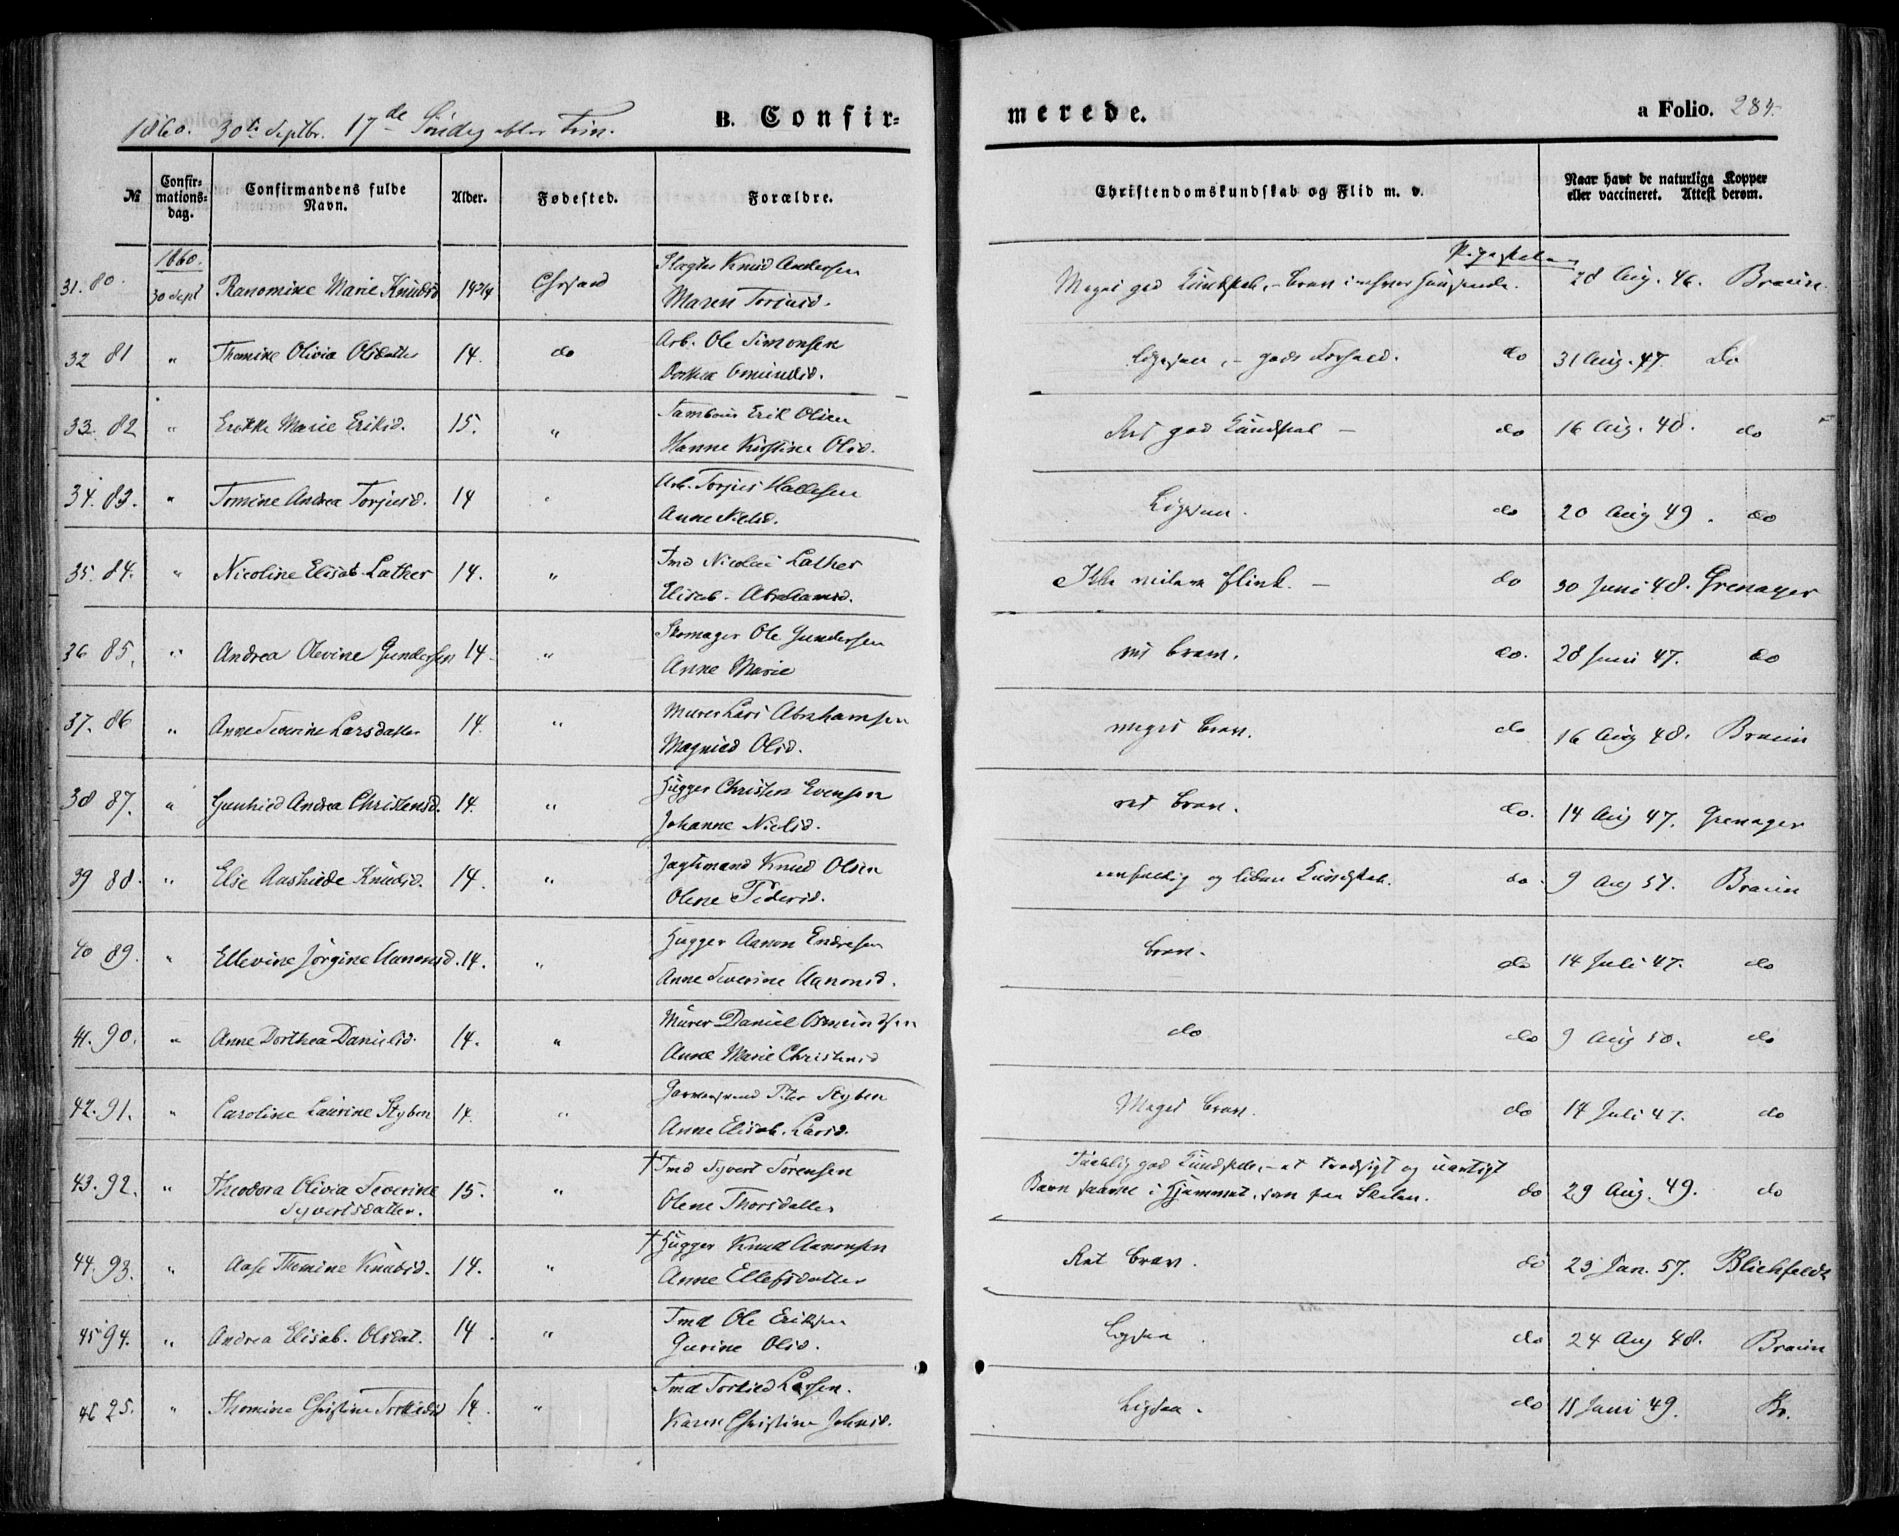 1860. 30te Septbr. 17de Søndag efter Trin. B. Confir-
merede. a Folio. 284.
№ Confir-mations-dag. Confirmandens fulde Navn. Alder. Fødested. Forældre. Christendomskundskab og Flid m. v. Naar havt de naturlige Kopper eller vaccineret. Attest derom.
1860.
31. 80. 30 Sept Ranomine Marie Knudsd. 14 Chrsand Knud Andersen
Maren Torjusd. Meget god Kundskab, 28 Aug. 46. Braun.
32 81 " Thomine Olivia Olsdatter 14. do Arb. Ole Simonsen
Osmundsd. Ligesaa, - godt Forhold. do 31 Aug. 47. do
33. 82 " Marie Eriksd. 15. " Tambour Erik Olsen
Hanne Kirstine Olsd. Ret god Kundskab - do 16 Aug. 48. do
34. 83. " Tomine Andrea Torjusd. 14 " Arb. Torjus Hallesen
Anne Nielsd. Ligesaa. do 20 Aug 49. do
35. 84. " Nicoline Elisab. Lather 14. " Tmd Nicolai Lather
Elisab. Abrahamsd. Ikke videre flink. - do 30 Juni 48. Grenager
36 85. " Andrea Olevine Gundersen 14 " Skomager Ole Gundersen
Anne Marie ret brav. do. 28 Juni 47. do
37. 86 " Anne Severine Larsdatter 14. " Murer Lars Abrahamsen
Magnild Olsd. meget brav. do 16 Aug 48. Braun
38 87. " Gunhild Andrea Christensd. 14. " Hugger Christen Evensen
Johanne Nielsd. ret brav. do. 14 Aug 47. Grenager
39 88. " Else Knudsd. 14. " Jagtmand Knud Olsen
Olene Pedersd. enfoldig og liden Kundskab. do. 9 Aug 57. Braun
40 89. " Ellevine Jörgine Aanonsd. 14. " Hugger Aanon Endresen
Anne Severine Aanonsd. brav. do 14 Juli 47. do
41. 90. " Anne Dorthea Danielsd. 14. " Murer Daniel Osmundsen
Anne Marie Christensd do do 9 Aug 50. do
42. 91. " Caroline Laurine Styben 14. " Styben
Anne Elisab. Larsd. Meget brav. do 14 Juli 47. do
43. 92. " Theodora Olivia Severine Syvertsdatter. 15. " † Tmd Syvert Sørensen
Olene Thorsdatter Kundskab, - et trodsigt og uartigt
Barn saavel i Hjemmet, som paa Skolen. do 29 Aug. 49. do
44. 93. " Aase Thomine Knudsd. 14. " † Hugger Knud Aanonsen
Anne Ellefsdatter Ret brav. do 23 Jan. 57. Blichfeldt
45 94. " Andrea Elisab. Olsdat. 14. " Tmd Ole Eriksen
Gurine Olsd. Ligesaa. do 24 Aug 48. Braun
46 25. " Thomine Christine Torkildsd 14. " Tmd Torkild Larsen.
Karen Christine Johnsd. Ligesaa. do 15 Juni 49. Br.